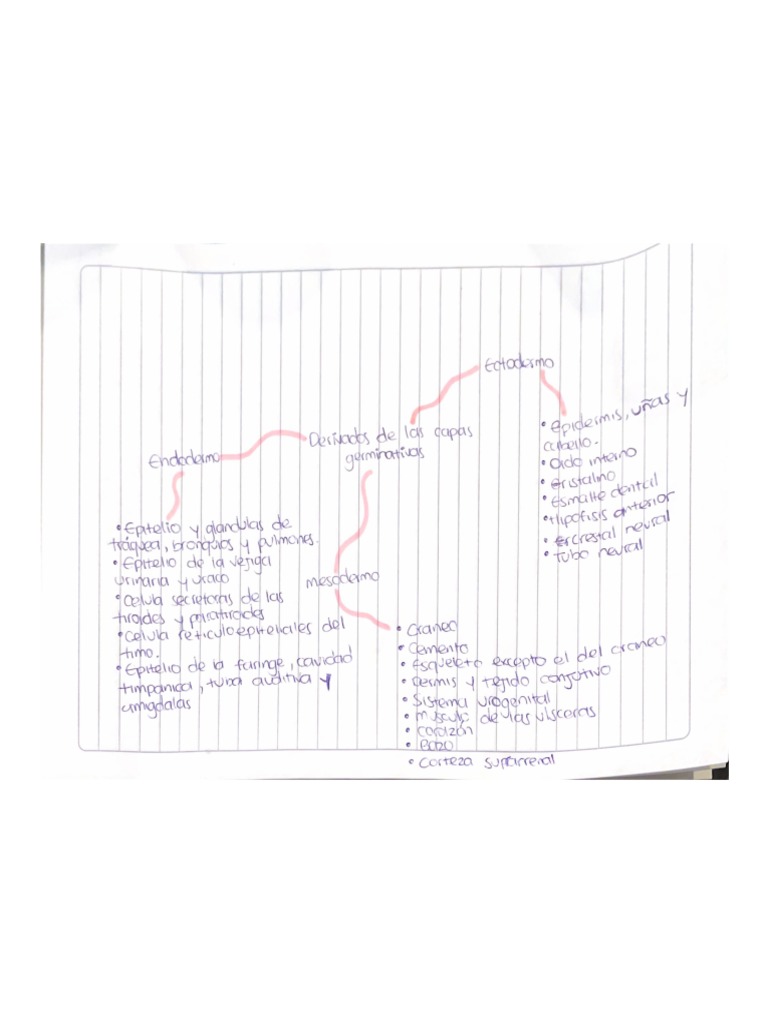 Ectodermo
• Epidermis, uñas y
cabello.
• Oido interno
• Cristalino
• Esmalte dental
• Hipofisis anterior
• Ercrestal neural
• Tubo neural
Derivados de las capas
germinativas
Endodermo
• Epitelio y glandulas de
tráquea, bronquios y pulmones.
• Epitelio de la vejiga
urinaria y uraco
• Celula secretoras de las
tiroides y paratiroides
• Celula reticuloepiteliales del
timo.
• Epitelio de la faringe, cavidad
timpanica, tuba auditiva y
amigdalas
mesodermo
• Craneo
• Cemento
• Esqueleto excepto el del craneo
• Dermis y tejido conjotivo
• Sistema urogenital
• musculo de las visceras
• Corazón
• Bazo
• Corteza suprarrenal